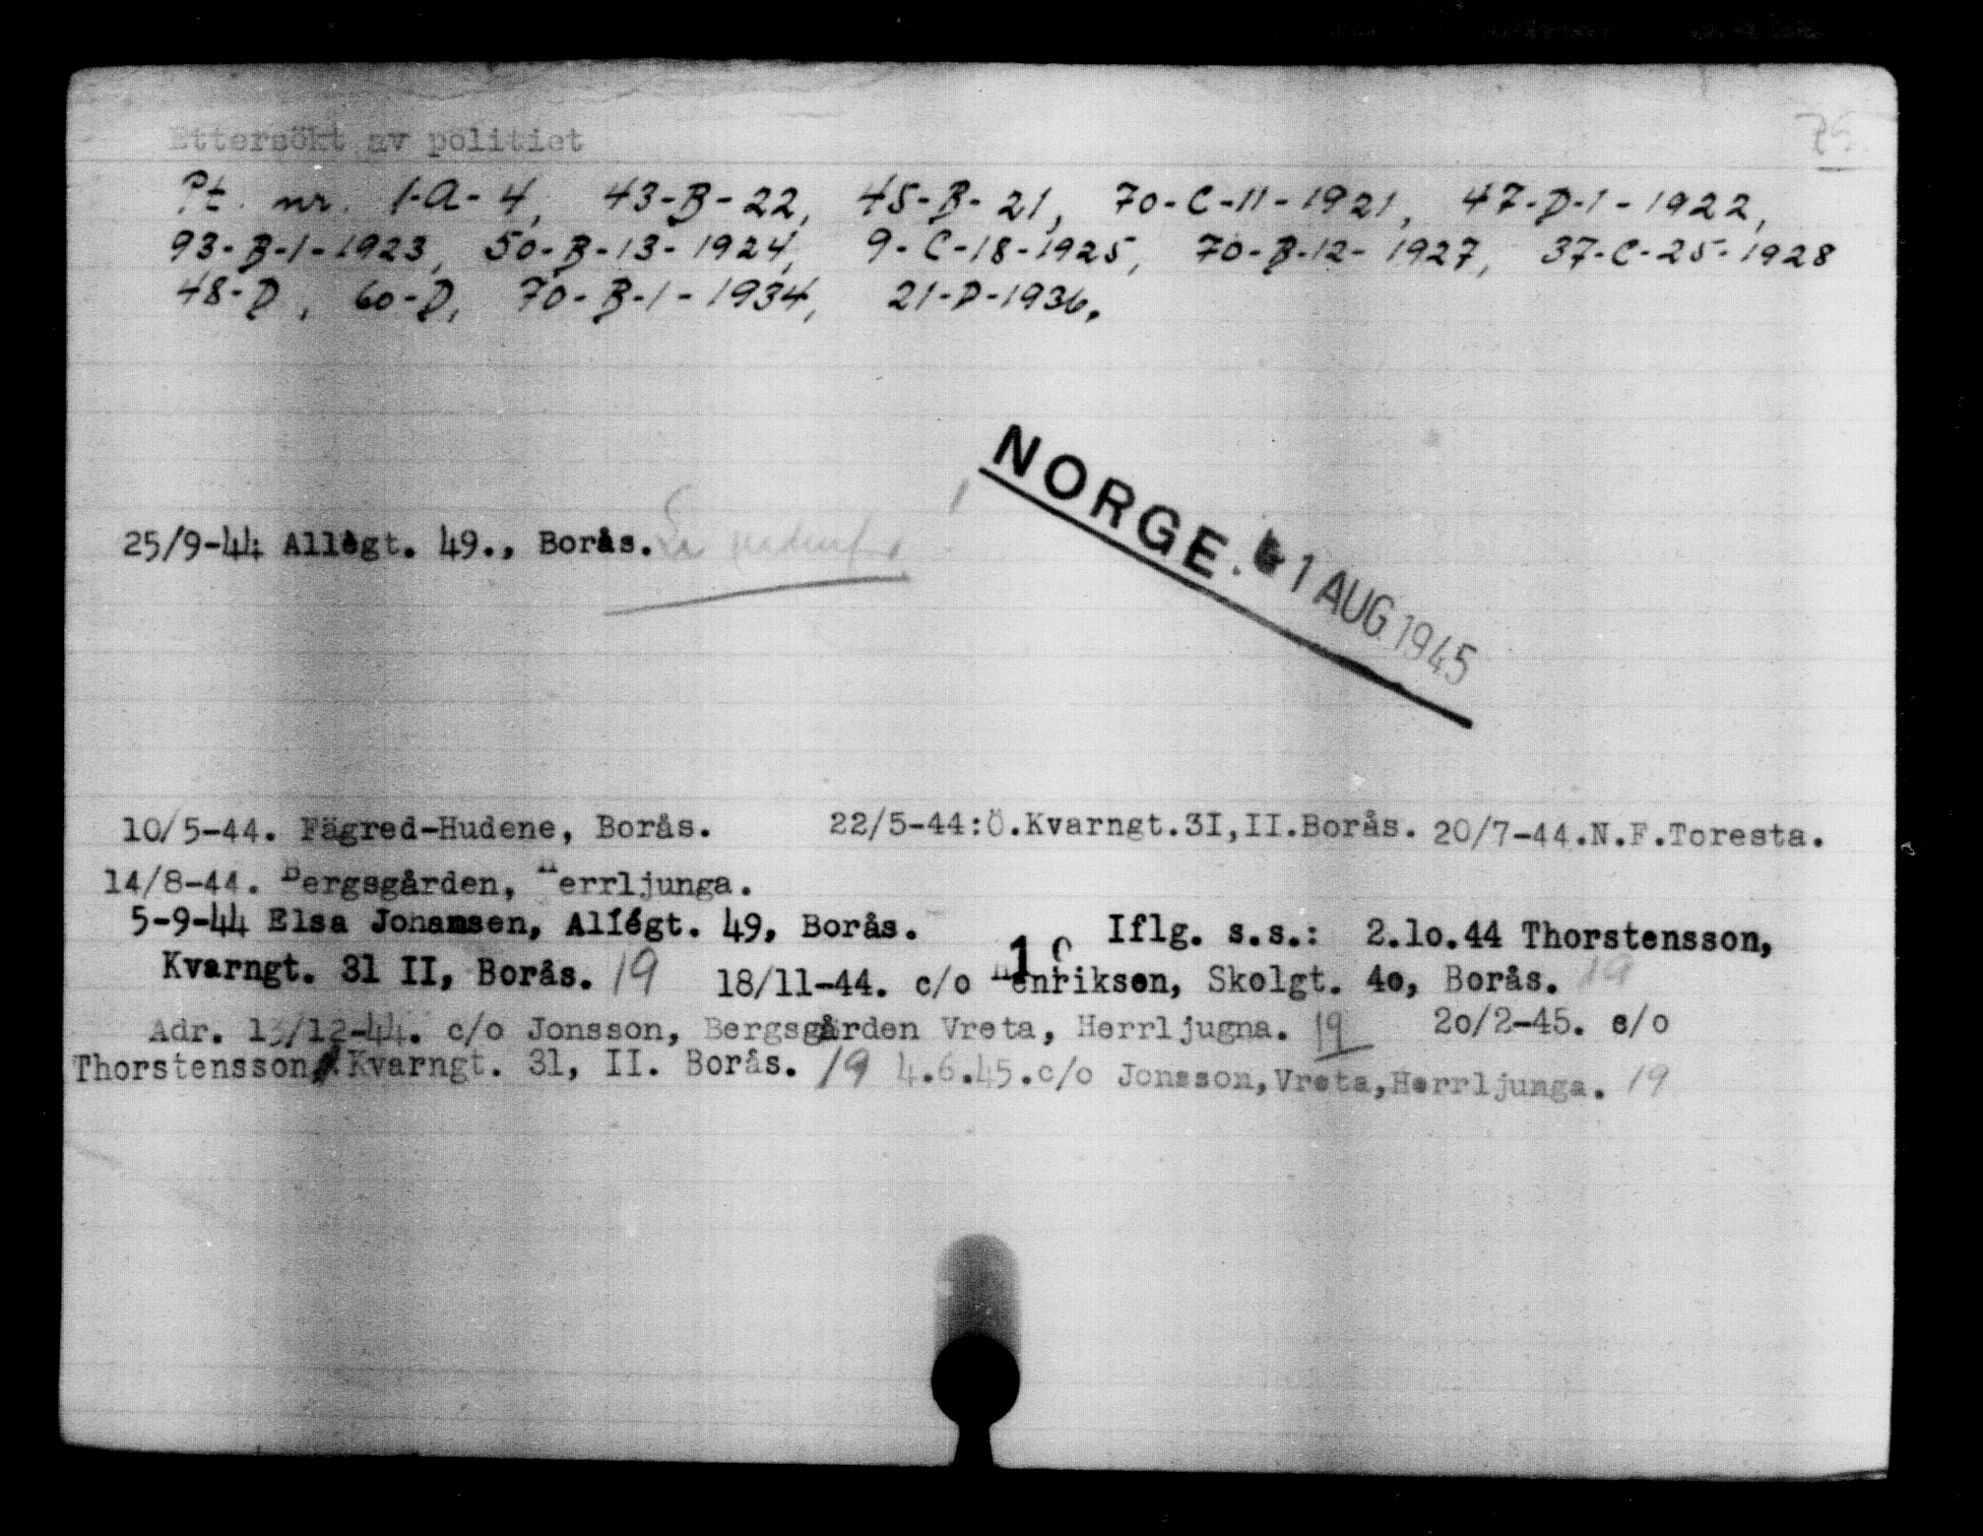 Ettersökt av politiet
75.
Pt. nr. 1-A-4, 43-B-22, 45-B-21, 70-C-11-1921, 47-D-1-1922,
93-B-1-1923, 50-B-13-1924, 9-C-18-1925, 70-B-12-1927, 37-C-25-1928
48-D, 60-D, 70-B-1-1934, 21-D-1936.
NORGE. 1 AUG 1945
25/9-44 Allégt. 49., Borås.
10/5-44. Fägred-Hudene, Borås. 22/5-44:Ö.Kvarngt.3I,II.Borås. 20/7-44.N.F.Toresta.
14/8-44. Bergsgården, Herrljunga.
5-9-44 Elsa Johansen, Allégt. 49, Borås. Iflg. s.s.: 2.1o.44 Thorstensson,
Kvarngt. 31 II, Borås. 19 18/11-44. c/o Henriksen, Skolgt. 4o, Borås. 19
Adr. 13/12-44. c/o Jonsson, Bergsgården Vreta, Herrljugna. 19 2o/2-45. c/o
Thorstensson, Kvarngt. 31, II. Borås. 19 4.6.45.c/o Jonsson,Vreta,Herrljunga. 19